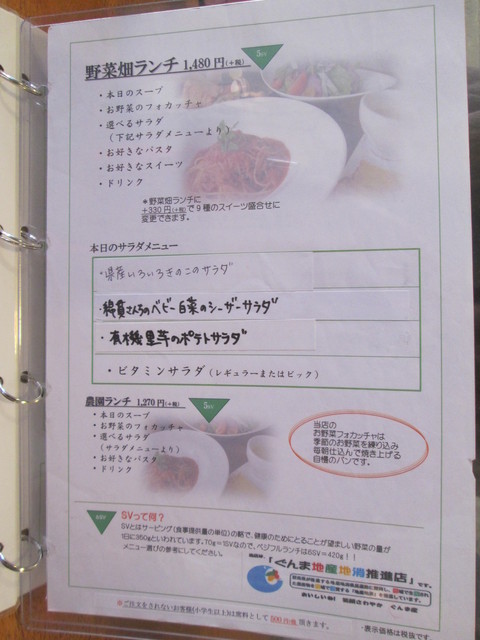 野菜畑ランチ 1,480円(+税)
5SV
・本日のスープ
・お野菜のフォカッチャ
・選べるサラダ
(下記サラダメニューより)
・お好きなパスタ
・お好きなスイーツ
・ドリンク
*野菜畑ランチに
+330円(+税)で9種のスイーツ盛合せに
変更できます。
本日のサラダメニュー
・県産いろいろきのこのサラダ
のベビー白菜のシーザーサラダ
・有機里芋のポテトサラダ
・ビタミンサラダ(レギュラーまたはビック)
農園ランチ 1,270円(+税)
5SV
・本日のスープ
・お野菜のフォカッチャ
・選べるサラダ
(サラダメニューより)
・お好きなパスタ
・ドリンク
当店の
お野菜フォカッチャは
季節のお野菜を練り込み
毎朝仕込んで焼き上げる
自慢のパンです。
6SV
SVって何?
SVとはサービング(食事提供量の単位)の略で、健康のためにとることが望ましい野菜の量が
1日に350gといわれています。70g=1SVなので、ベジフルランチは6SV=420g!!
メニュー選びの参考にしてください。
「ぐんま地産地消推進店」です。
おいしい朝! 笑顔さわやか ぐんま産
※ご注文をされないお客様(小学生以上)は席料として500円/1名 頂きます。
・表示価格は税抜です